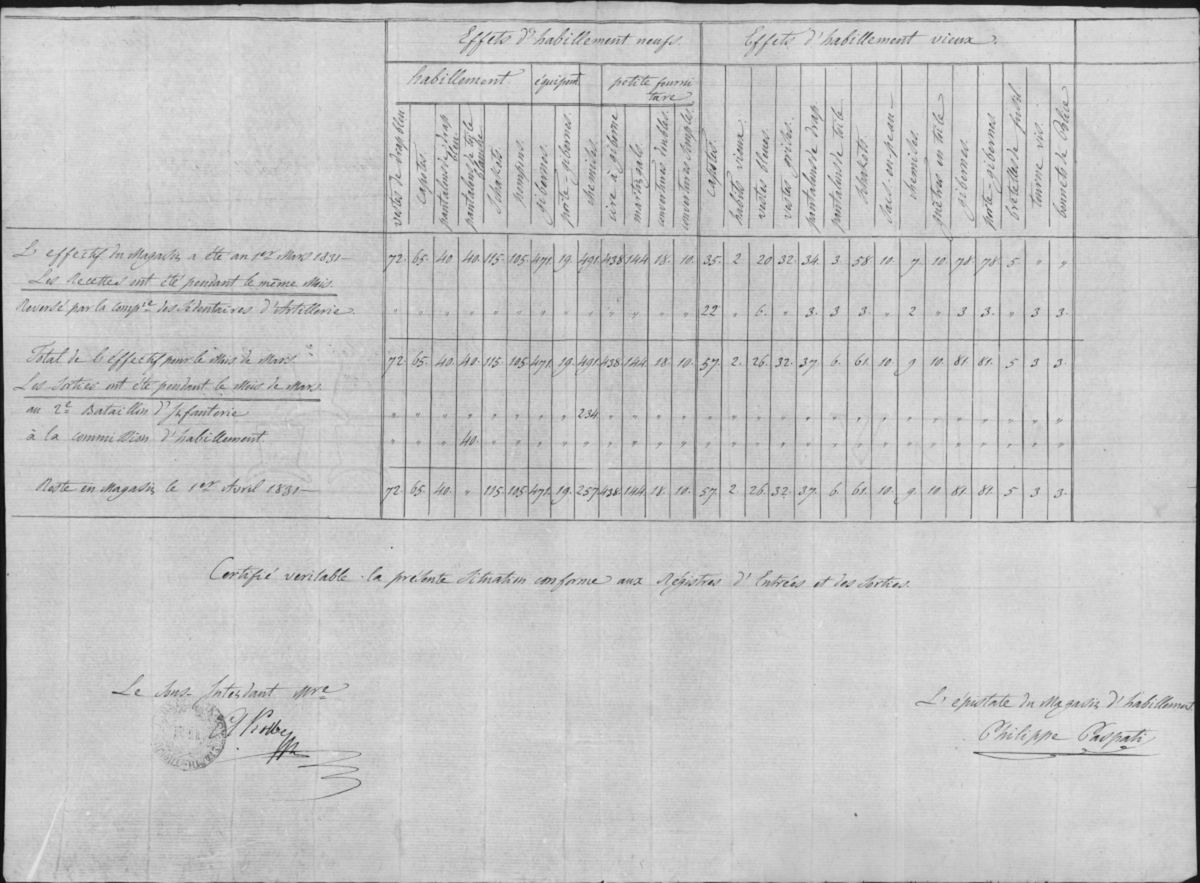 Effets d'habillement neufs. Effets d'habillement vieux.
habillement équipmt petite fourniture
vestes de drap bleu
capotes
pantalons de drap bleu
pantalons de toile blanche
Schakots
pompons
gibernes
porte-gibernes
chemises
cire à giberne
martingals
couvertures doubles
couvertures simples
capotes
habits vieux
vestes bleues
vestes grises
pantalons de drap
pantalons de toile
schakots
sacs-en-peau
chemises
guêtres en toile
gibernes
porte-gibernes
bretelles de fusil
tourne vis
bonnets de Police
L'effectif du Magasin a été au 1er Mars 1831 — 72. 65. 40 40. 115. 105. 471. 19. 491. 438. 144. 18. 10. 35. 2 20 32. 34. 3. 58 10. 7. 10 78 78. 5 " "
Les Recettes ont été pendant le même Mois.
Reversé par la compie des Sédentaires d'Artillerie " " " " " " " " " " " " " 22 " 6. " 3. 3 3. " 2 " 3 3. " 3 3.
Total de l'effectif pour le Mois de Mars 72. 65. 40. 40. 115. 105. 471. 19. 491. 438. 144. 18. 10. 57. 2. 26. 32. 37. 6. 61. 10. 9 10. 81. 81. 5 3 3.
Les Sorties ont été pendant le Mois de Mars
au 2e Bataillon d'Infanterie " " " " " " " " 234. " " " " " " " " " " " " " " " " " " "
à la commission d'habillement " " " 40. " " " " " " " " " " " " " " " " " " " " " " " "
Reste en Magasin le 1er Avril 1831 — 72. 65. 40. " 115. 105. 471. 19. 257. 438. 144. 18. 10. 57. 2. 26. 32. 37. 6. 61. 10. 9. 10. 81. 81. 5 3 3.
Certifié veritable la présente Situation conforme aux Régistres d'Entrées et des Sorties.
Le Sous-Intendant Mre
L'épistate du Magasin d'habillement
Philippe Paspati